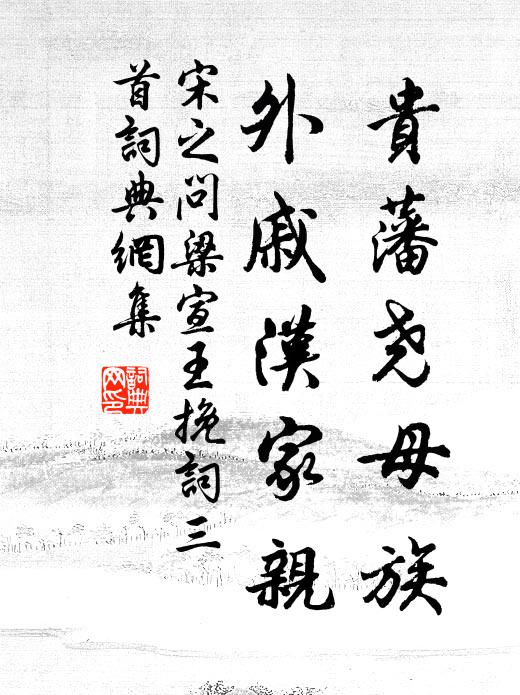 貴藩堯母族
外戚漢家親
宋之问梁宣王挽詞三
首詞典網集
詞典
网印